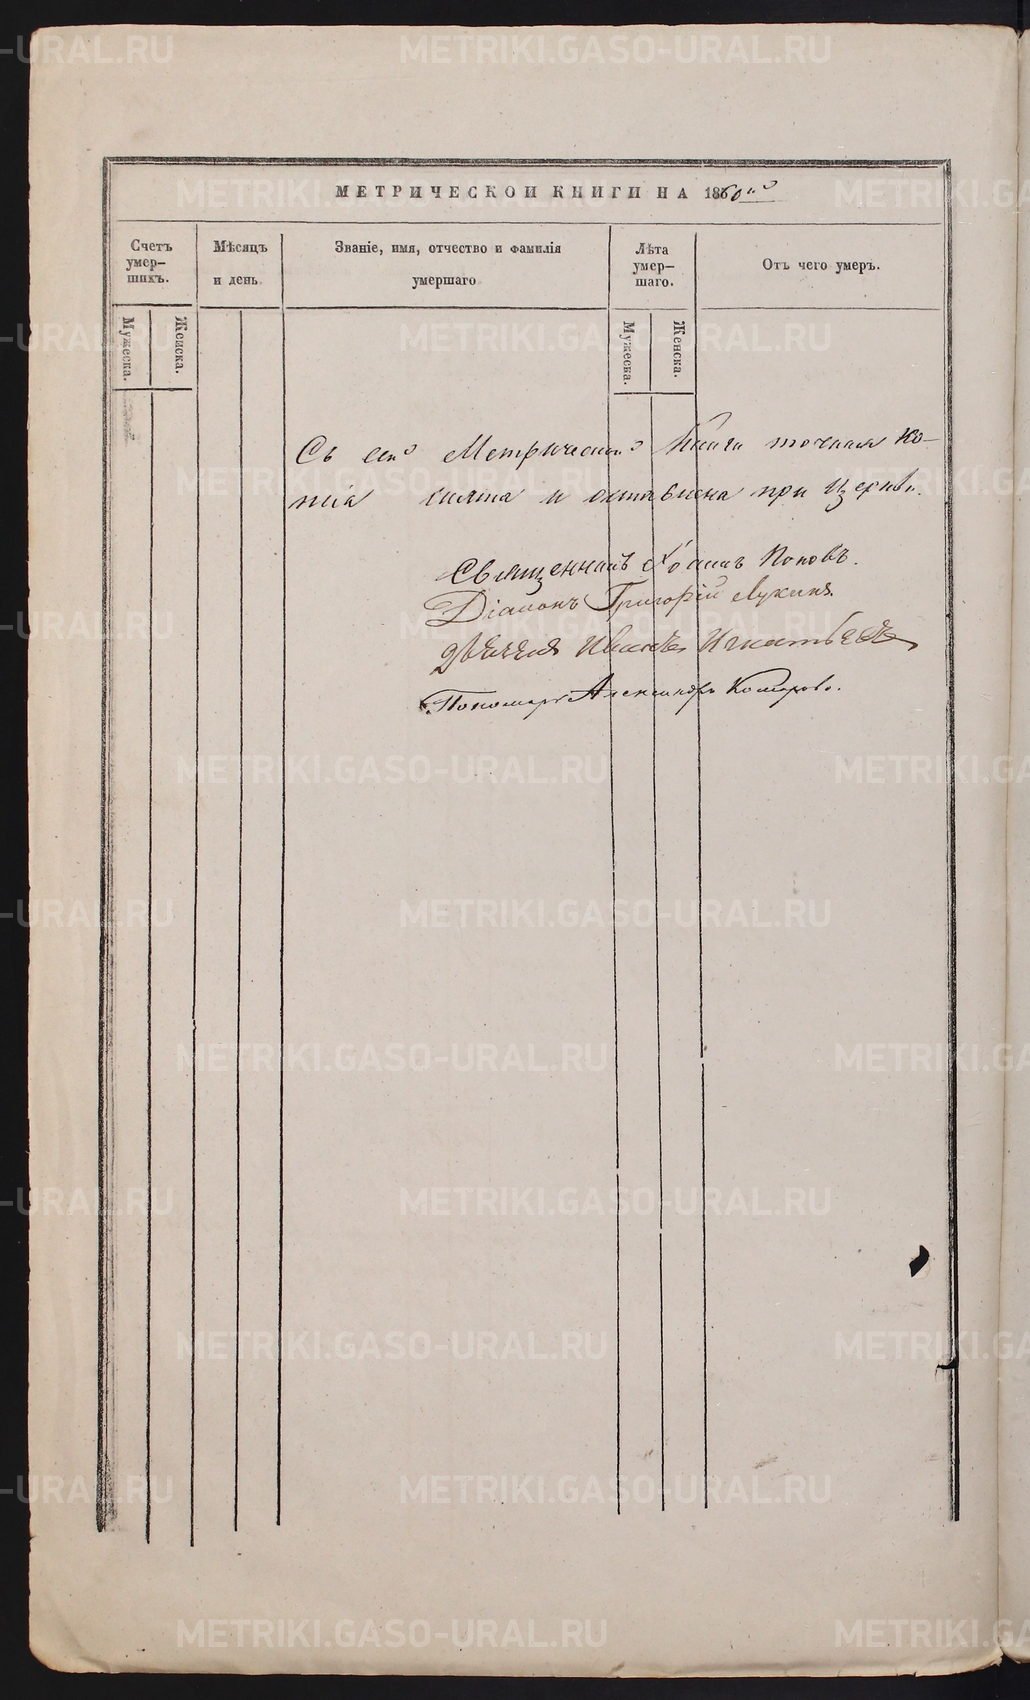 МЕТРИЧЕСКОЙ КНИГИ НА 1860ий
Счетъ
умер-
шихъ.
Мѣсяцъ
и день.
Званіе, имя, отчество и фамилія
умершаго
Лѣта
умер-
шаго.
Отъ чего умеръ.
Мужеска.
Женска.
Мужеска.
Женска.
Съ сей Метрической Книги точная ко-
пія снята и оставлена при Церкви.
Священникъ Іоаннъ Поповъ.
Діаконъ Григорій Лукинъ.
Дьячекъ Иванъ Игнатьевъ
Пономарь Александръ Комаровъ.
METRIKI.GASO-URAL.RU